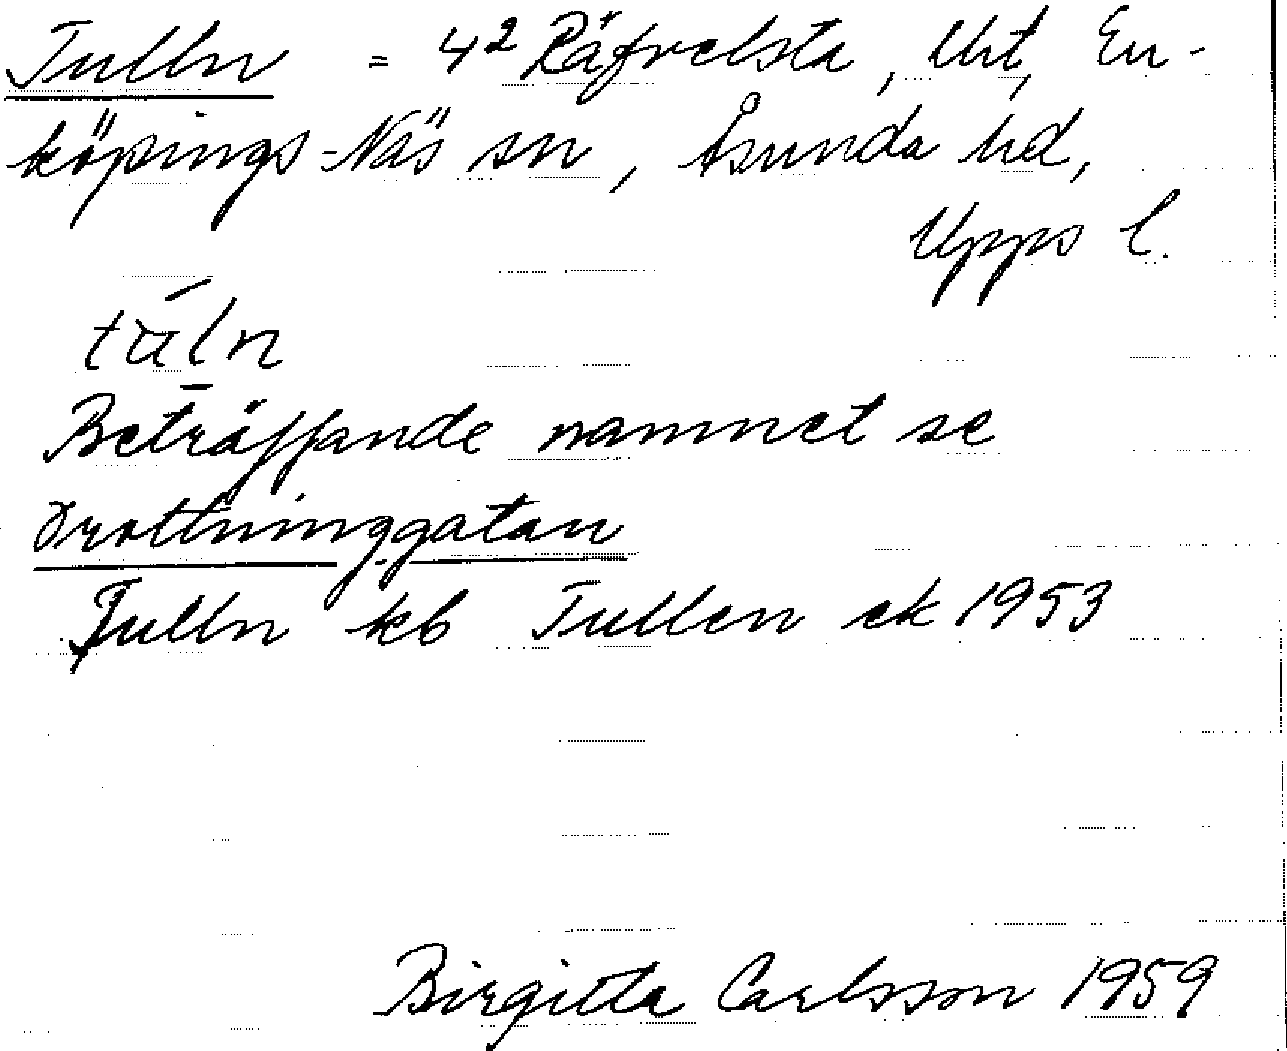 Tulln = 4² Räfvelsta, Urt, En-
köpings-Näs sn, Åsunda hd,
Upps l.
Beträffande namnet se
Drottninggatan
Tulln kb Tullen ek 1953
Birgitta Carlsson 1959